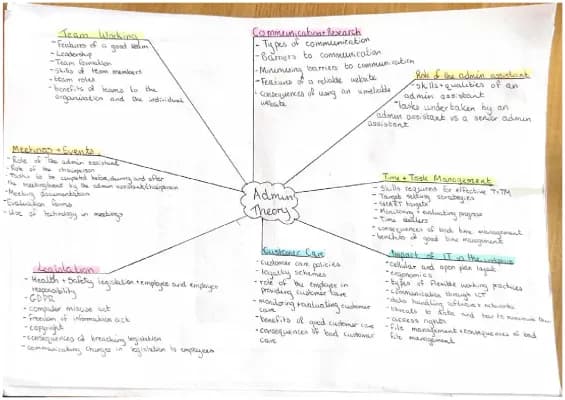 Team Working
- Features of a good team
- Leadership
- Team formation
- Skills of team members
- team roles
- benefits of teams to the
organisation and the individual
Communication + Research
- Types of communication
- Barriers to communication
- Minimising barriers to communication
- Features of a reliable website
- consequences of using an unreliable
website
Role of the admin assistant
- skills + qualities of an
admin assistant
- tasks undertaken by an
admin assistant vs a senior admin
assistant
Meetings + Events
- Role of the admin assistant
- Role of the chairperson
- Tasks to be completed before, during and after
the meeting/event by the admin assistant/chairperson
- Meeting documentation
- Evaluation forms
- Use of technology in meetings
Admin
Theory
Time + Task Management
- Skills required for effective T+TM
- Target setting strategies
- SMART targets
- Monitoring + evaluating progress
- Time stealers
- consequences of bad time management
- benefits of good time management
Legislation
- Health + Safety legislation + employee and employer
responsibility
- GDPR
- computer misuse act
- freedom of information act
- copyright
- consequences of breaching legislation
- communicating changes in legislation to employees
Customer Care
- customer care policies
- loyalty schemes
- role of the employee in
providing customer care
- monitoring + evaluating customer
care
- benefits of good customer care
- consequences of bad customer
care
Impact of IT in the workplace
- cellular and open plan layout
- ergonomics
- types of flexible working practices
- communication through ICT
- data handling software + networks
- threats to data and how to
- access rights
- file management + consequences of bad
file management